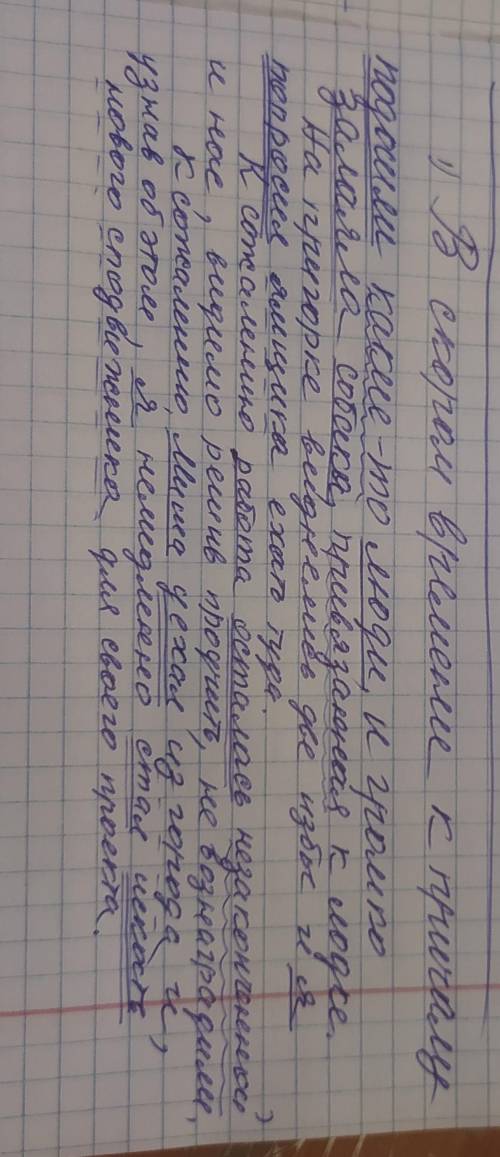 1) В скором времени к причалу
подошли какие-то люди, и громко
залаяла собака, привязанная к лодке.
На пригорке виднелись две избы и я
попросил ямщика ехать туда.
К сожалению работа осталась незаконченной
и нас, видимо решив проучить, не вознаградили,
К сожалению, Миша уехал из города и,
узнав об этом, я немедленно стал искать
нового сподвежника для своего проекта.